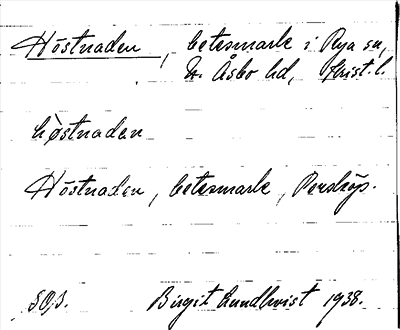 Höstnaden, betesmark i Rya sn,
N. Åsbo hd, Krist. l.
hòstnadən
Höstnaden, betesmark, Perstorp.
Birgit Lundkvist 1938.